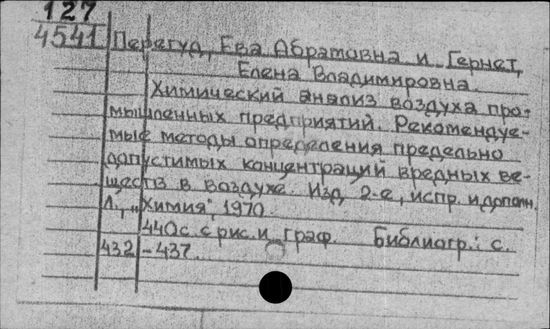 127
4541 Перегуд, Ева Абрамовна и Гернет,
Елена Владимировна.
Химический анализ воздуха про-
мышленных предприятий. Рекомендуе-
мые методы определения предельно
допустимых концентраций вредных ве-
ществ в воздухе. Изд. 2-е, испр. и дополн.
Л., „Химия", 1970.
440с. с рис. и граф. Библиогр.: с.
432 -437.